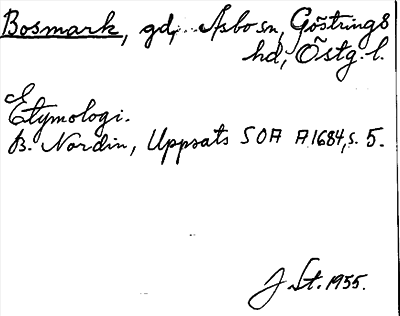 Bosmark, gd, Åsbo sn, Göstrings
hd, Östg. l.
Etymologi.
B. Nordin, Uppsats SOA A 1684, s. 5.
J St. 1955.